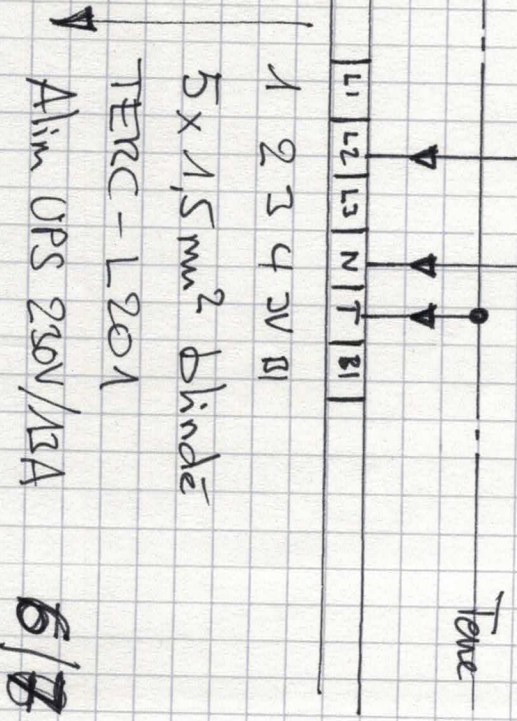 Terre
L1 L2 L3 N T Bl
1 2 3 4 JV Bl
5 x 1,5 mm² blindé
TERC - L201
Alim UPS 230V/13A